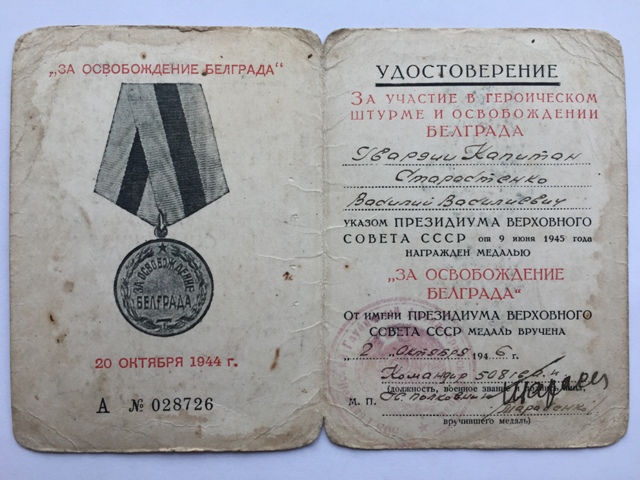 „ЗА ОСВОБОЖДЕНИЕ БЕЛГРАДА"
ЗА ОСВОБОЖДЕНИЕ
БЕЛГРАДА
20 ОКТЯБРЯ 1944 г.
А № 028726
УДОСТОВЕРЕНИЕ
ЗА УЧАСТИЕ В ГЕРОИЧЕСКОМ
ШТУРМЕ И ОСВОБОЖДЕНИИ
БЕЛГРАДА
Гвардии Капитан
Старостенко
Василий Васильевич
УКАЗОМ ПРЕЗИДИУМА ВЕРХОВНОГО
СОВЕТА СССР от 9 июня 1945 года
НАГРАЖДЕН МЕДАЛЬЮ
„ЗА ОСВОБОЖДЕНИЕ
БЕЛГРАДА"
ОТ ИМЕНИ ПРЕЗИДИУМА ВЕРХОВНОГО
СОВЕТА СССР МЕДАЛЬ ВРУЧЕНА
„2" Октября 1946 г.
Командир
Должность, военное звание и подпись
М. П. полковник
вручившего медаль)